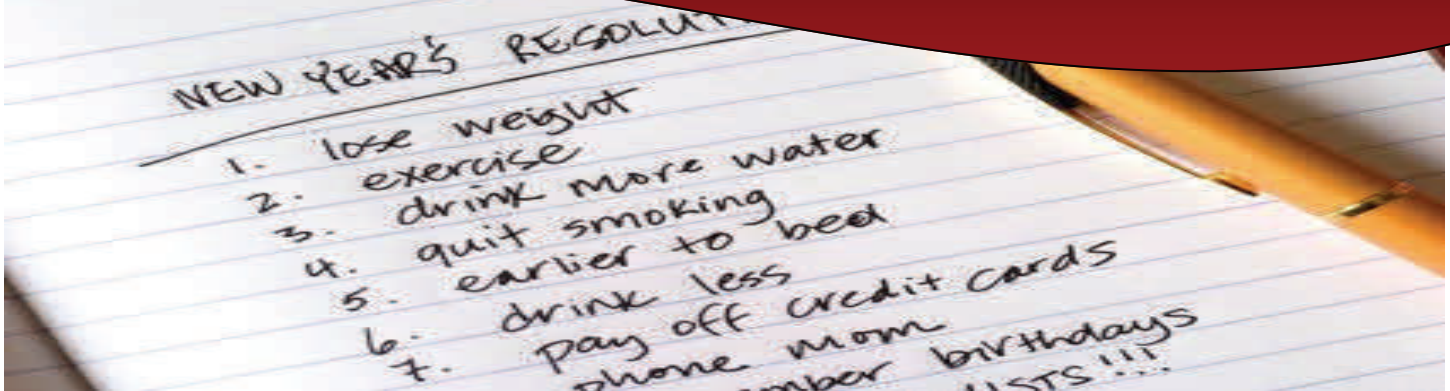 NEW YEAR'S RESOLUT
1. lose weight
2. exercise
3. drink more water
4. quit smoking
5. earlier to bed
6. drink less
7. pay off credit cards
phone mom
mber birthdays
ISTS!!!